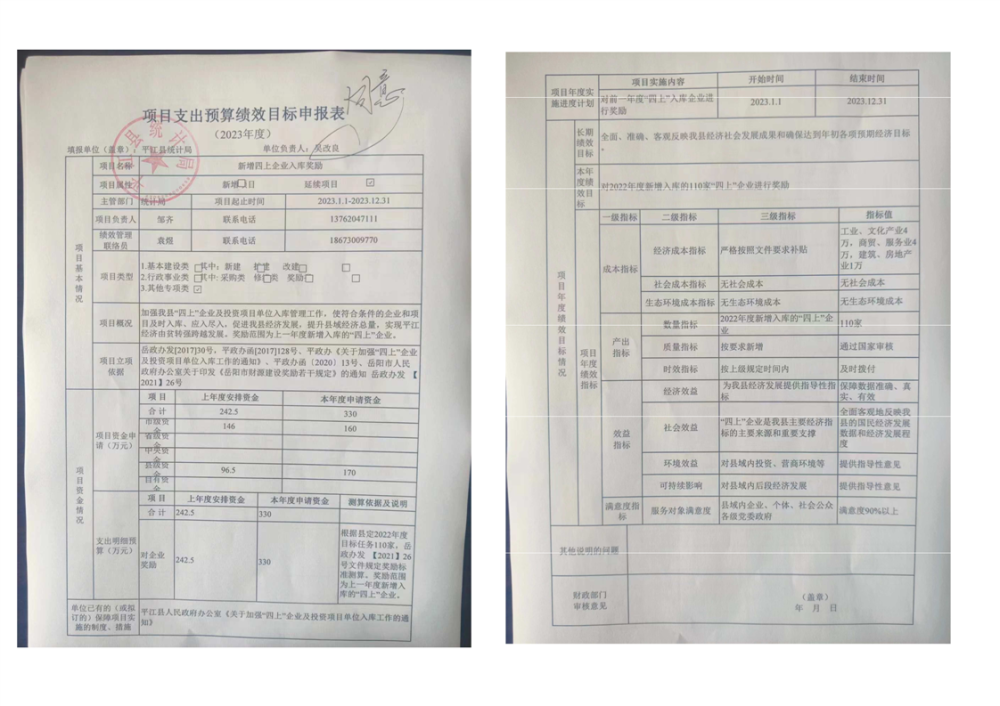 同意
项目支出预算绩效目标申报表
（2023年度）
填报单位（盖章）：平江县统计局 单位负责人：吴改良
项目名称 新增四上企业入库奖励
项目属性 新增项目 延续项目 ☑
主管部门 统计局 项目起止时间 2023.1.1-2023.12.31
项目负责人 邹齐 联系电话 13762047111
绩效管理
联络员 袁煜 联系电话 18673009770
项目基本情况
项目类型
1.基本建设类 □ 其中：新建 扩建 改建 □
2.行政事业类 □ 其中: 采购类 修缮类 奖励 □
3.其他专项类 ☑
项目概况
加强我县“四上”企业及投资项目单位入库管理工作，使符合条件的企业和项
目及时入库、应入尽入，促进我县经济发展，提升县域经济总量，实现平江
经济由贫转强跨越发展。奖励范围为上一年度新增入库的“四上”企业。
项目立项
依据
岳政办发[2017]30号，平政办函[2017]128号、平政办《关于加强“四上”企业
及投资项目单位入库工作的通知》、平政办函〔2020〕13号、岳阳市人民
政府办公室关于印发《岳阳市财源建设奖励若干规定》的通知 岳政办发【
2021】26号
项目资金情况
项目资金申
请（万元）
项 目 上年度安排资金 本年度申请资金
合 计 242.5 330
市级资金 146 160
省级资金
中央资金
县级资金 96.5 170
自有资金
支出明细预
算（万元）
项 目 上年度安排资金 本年度申请资金 测算依据及说明
合 计 242.5 330
对企业
奖励 242.5 330
根据县定2022年度
目标任务110家，岳
政办发 【2021】26
号文件规定奖励标
准测算。奖励范围
为上一年度新增入
库的“四上”企业。
单位已有的（或拟
订的）保障项目实
施的制度、措施
平江县人民政府办公室《关于加强“四上”企业及投资项目单位入库工作的通
知》
项目年度实
施进度计划
项目实施内容 开始时间 结束时间
对前一年度“四上”入库企业进
行奖励 2023.1.1 2023.12.31
项目年度绩效目标情况
长期
绩效
目标
全面、准确、客观反映我县经济社会发展成果和确保达到年初各项预期经济目标
。
本年
度绩
效目
标
对2022年度新增入库的110家“四上”企业进行奖励
项目年度绩效指标
一级指标 二级指标 三级指标 指标值
成本指标
经济成本指标 严格按照文件要求补贴
工业、文化产业4
万，商贸、服务业4
万，建筑、房地产
业1万
社会成本指标 无社会成本 无社会成本
生态环境成本指标 无生态环境成本 无生态环境成本
产出
指标
数量指标 2022年度新增入库的“四上”企
业 110家
质量指标 按要求新增 通过国家审核
时效指标 按上级规定时间内 及时拨付
效益
指标
经济效益 为我县经济发展提供指导性指
标 保障数据准确、真
实、有效
社会效益 “四上”企业是我县主要经济指
标的主要来源和重要支撑
全面客观地反映我
县的国民经济发展
数据和经济发展程
度
环境效益 对县域内投资、营商环境等 提供指导性意见
可持续影响 对县域内后段经济发展 提供指导性意见
满意度指
标 服务对象满意度 县域内企业、个体、社会公众
各级党委政府 满意度90%以上
其他说明的问题
财政部门
审核意见
（盖章）
年 月 日